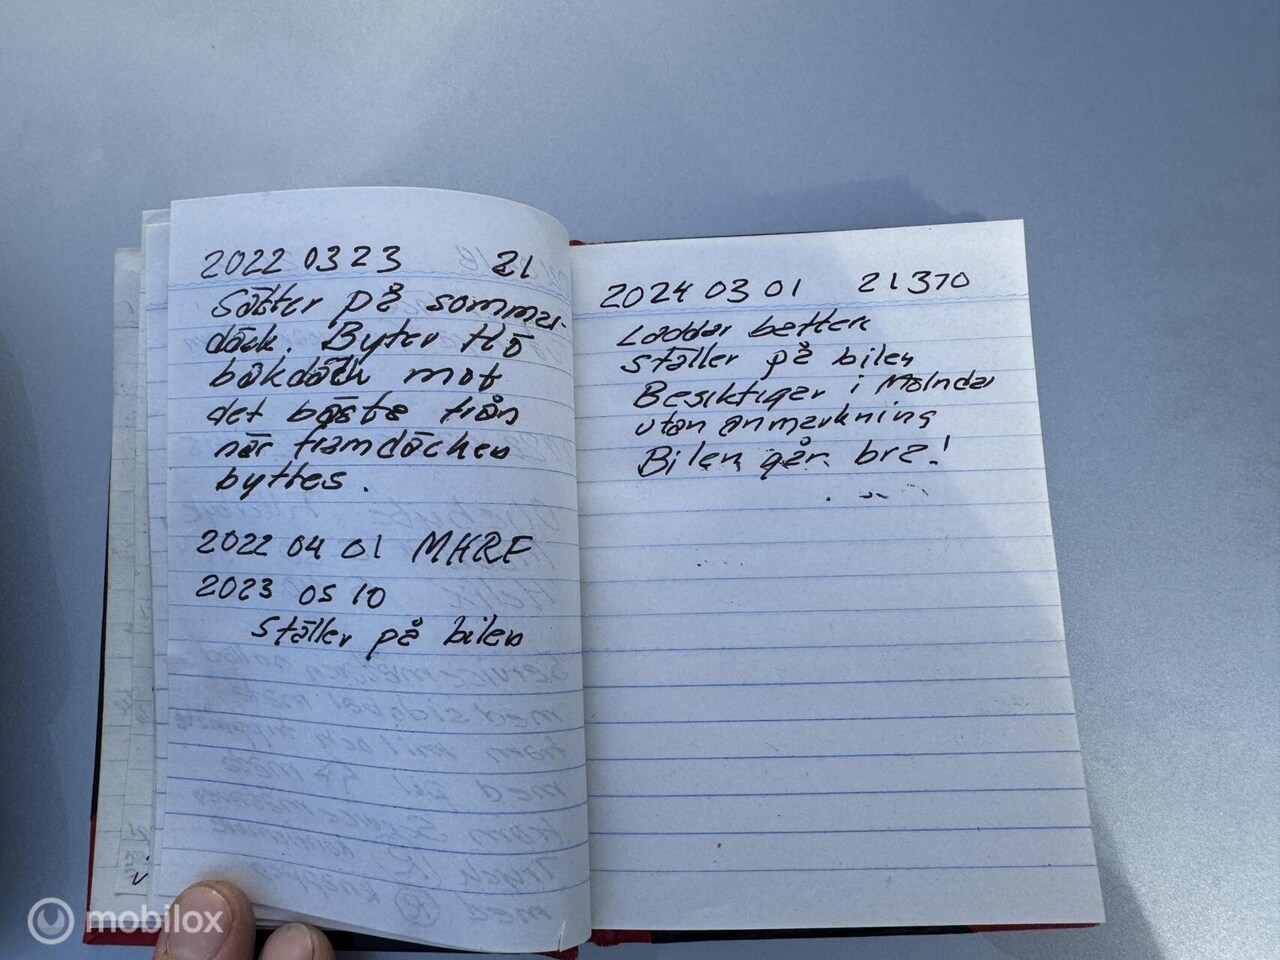 2022 03 23 21
Sätter på sommar-
däck. Byter thö
bakdäck mot
det bästa från
när framdäcken
byttes.
2022 04 01 MHRF
2023 05 10
Ställer på bilen
2024 03 01 21370
Laddar batteri
ställer på bilen
Besiktigar i Mölndal
utan anmärkning
Bilen går bra!
mobilox